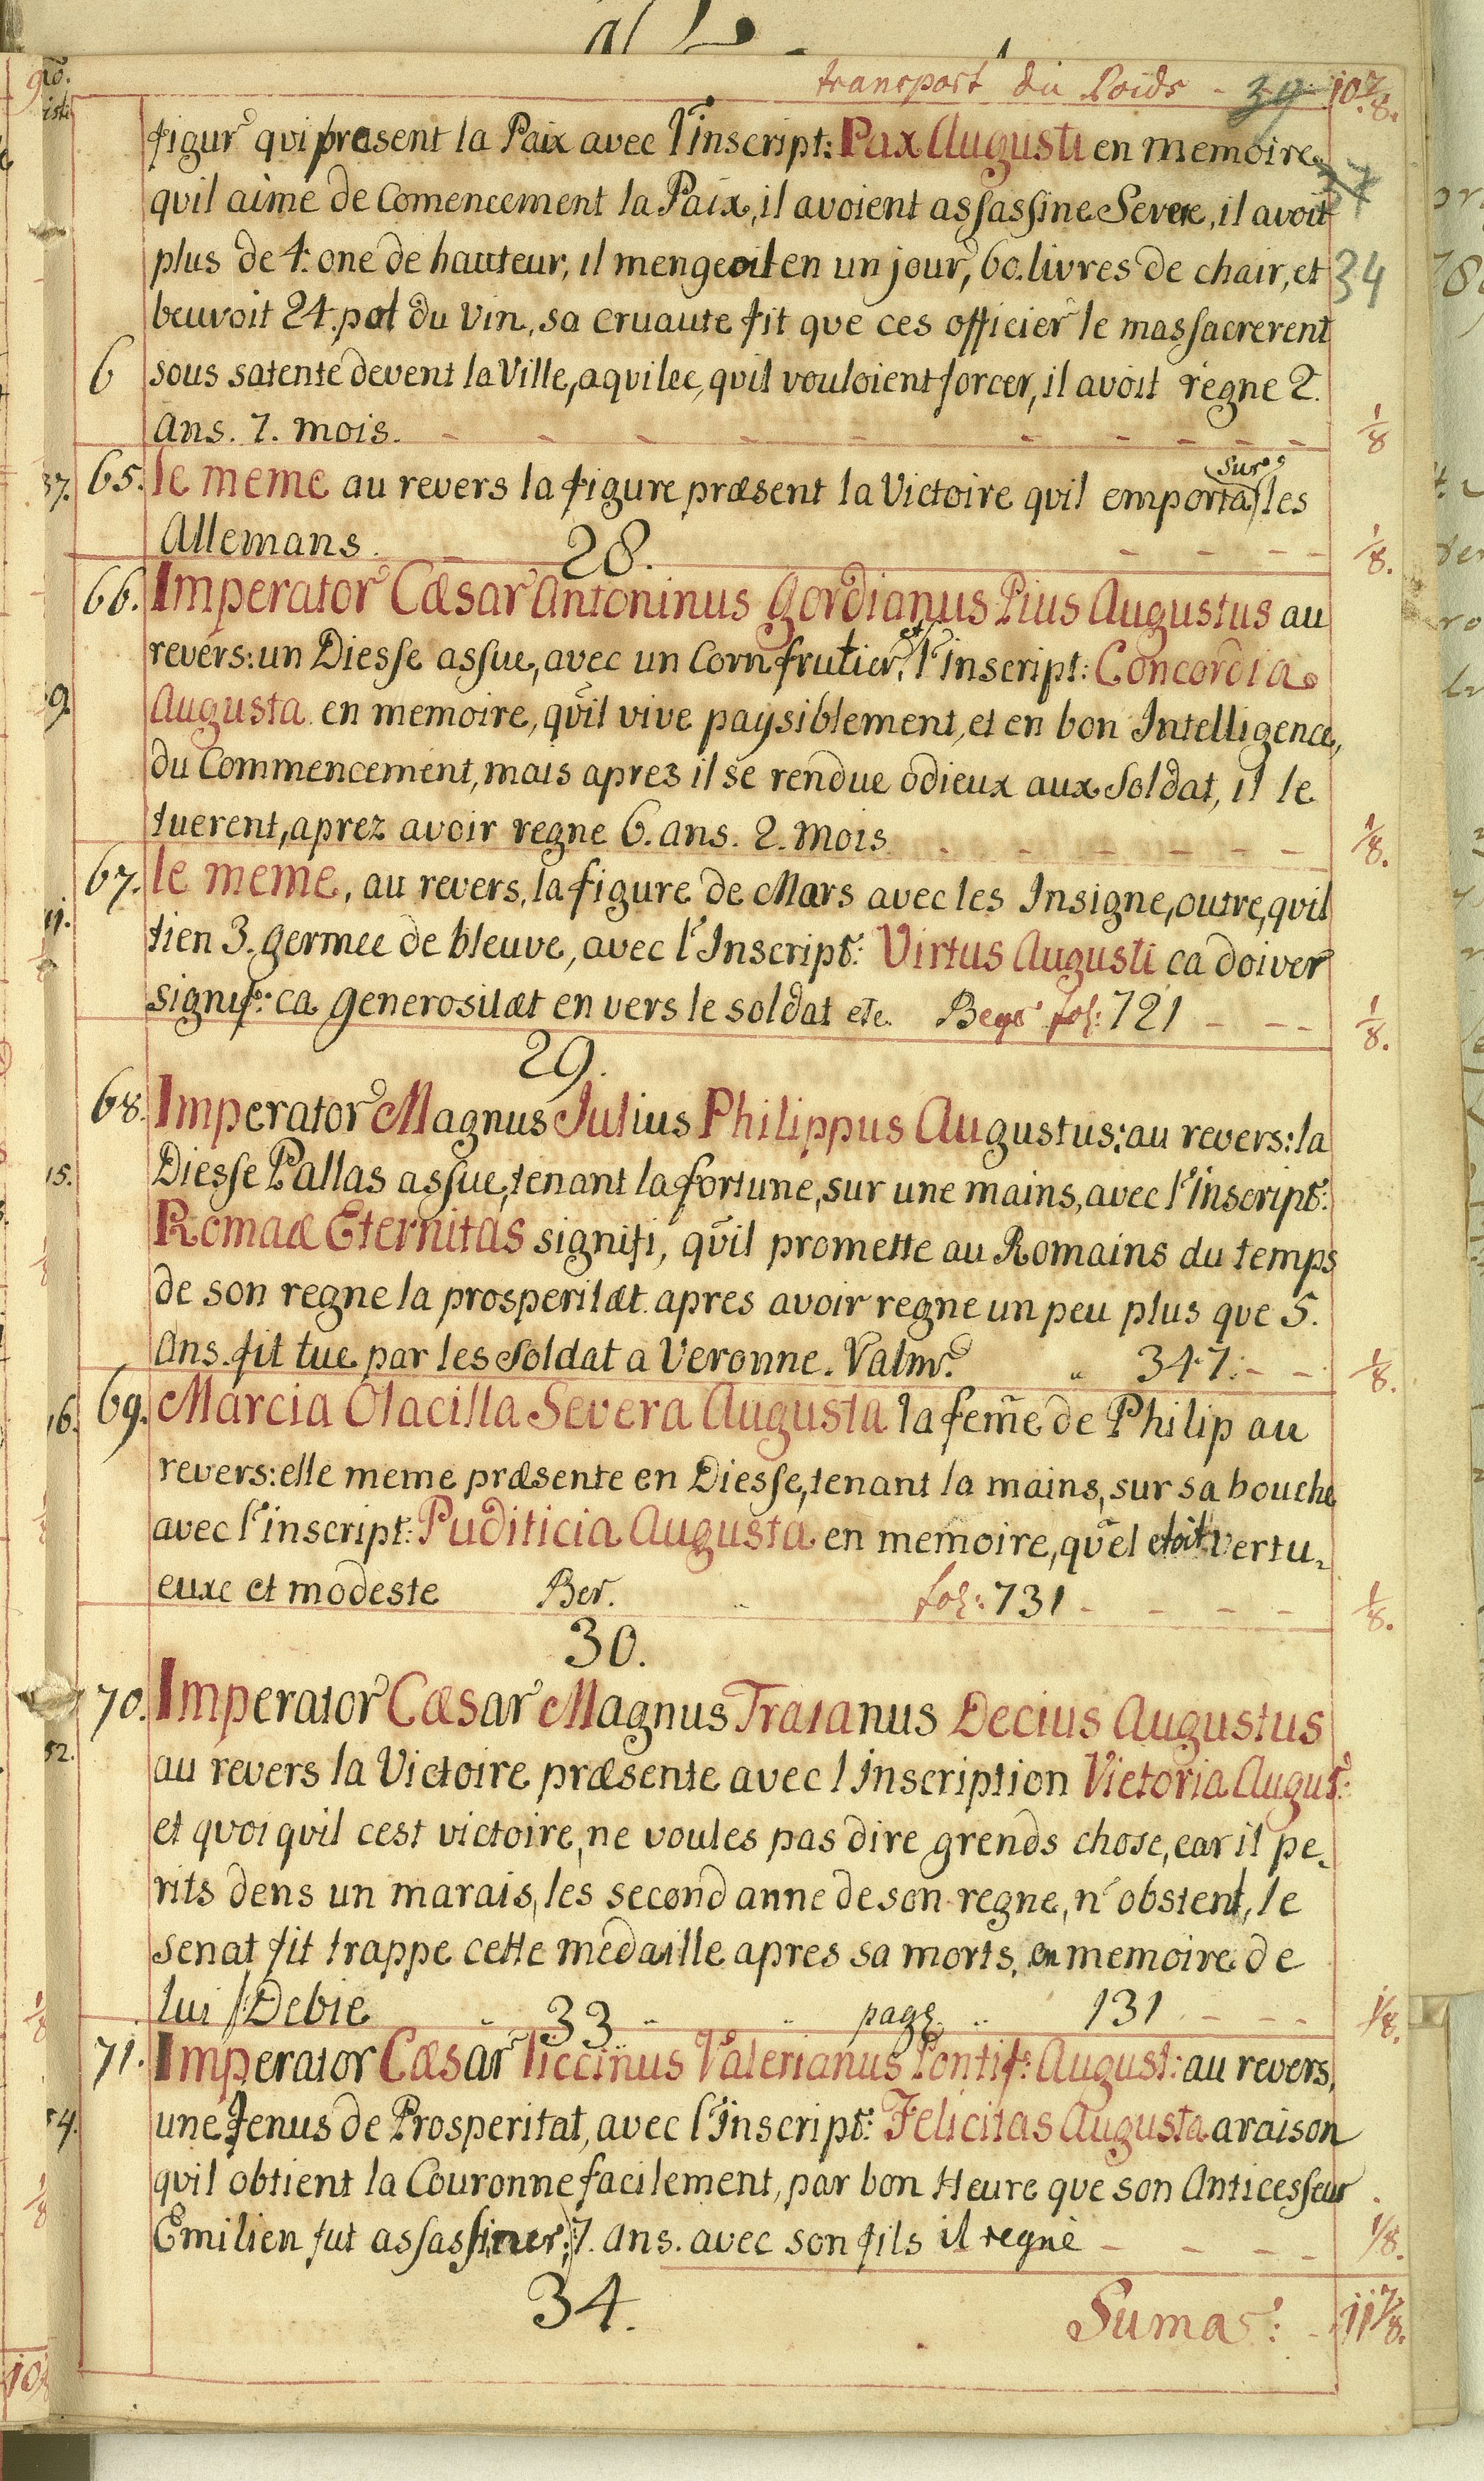 transport du Poids - 39 10 7/8.
figur qui præsent la Paix avec l'inscript: Pax Augusti en memoire
quil aime de Comencement la Paix, il avoient assassine Severe, il avoit
plus de 4. one de hauteur, il mengeoit en un jour, 60. livres de chair, et 34
beuvoit 24. pot du Vin, sa cruaute fit que ces officier le massacrerent
6 sous satente devent la Ville, aquilee, quil vouloient forcer, il avoit regne 2.
ans. 7. mois. - - - - - - - - - 1/8
65. le meme au revers la figure præsent la Victoire quil emporta sur les
Allemans. - 28. - - - - 1/8.
66. Imperator Cæsar Antoninus Gordianus Pius Augustus au
revers: un Diesse assue, avec un Corn frutier, et l'inscript: Concordia
Augusta en memoire, qu'il vive paysiblement, et en bon Intelligence,
du Commencement, mais apres il se rendue odieux aux soldat, il le
tuerent, aprez avoir regne 6. ans. 2. mois - - - - - - 1/8.
67. le meme, au revers, la figure de Mars avec les Insigne, outre, quil
tien 3. germee de bleuve, avec l'Inscript: Virtus Augusti ca doiver
signif: ca generositæt en vers le soldat etc. fol: 721 - - - 1/8.
29.
68. Imperator Magnus Julius Philippus Augustus: au revers: la
Diesse Pallas assue, tenant la fortune, sur une mains, avec l'Inscript:
Romaæ Eternitas signifi, qu'il promette au Romains du temps
de son regne la prosperitæt. apres avoir regne un peu plus que 5.
Ans. fit tue par les soldat a Veronne. Valm. " 347. - - 1/8.
69. Marcia Otacilla Severa Augusta la feme de Philip au
revers: elle meme præsente en Diesse, tenant la mains, sur sa bouche
avec l'inscript: Puditicia Augusta en memoire, qu'el etoit vertu-
euxe et modeste Ber. " fol: 731 - - - - 1/8.
30.
70. Imperator Cæsar Magnus Traianus Decius Augustus
au revers la Victoire præsente avec l Inscription Victoria Augus:
et quoi quil cest victoire, ne voules pas dire grends chose, car il pe-
rits dens un marais, les second anne de son regne, n'obstent, le
senat fit trappe cette medaille apres sa morts, en memoire de
lui /: Debie " 33 " " pag. " 131 - - - 1/8.
71. Imperator Cæsar Liccinus Valerianus Pontif: August: au revers,
une Jenus de Prosperitat, avec l'Inscript: Felicitas Augusta a raison
quil obtient la Couronne facilement, par bon Heure que son Anticesseur
Emilien fut assassiner; 7. ans. avec son fils il regne - - - - 1/8.
34.
Suma: - 11 7/8.